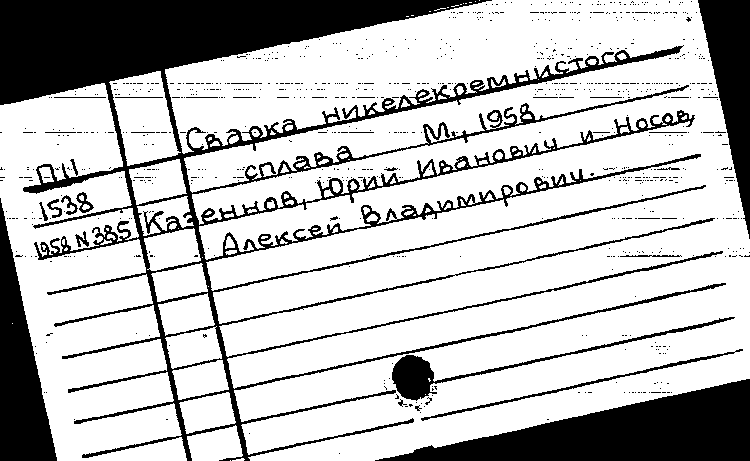 Сварка никелекремнистого
П11 сплава М., 1958.
1538 Казеннов, Юрий Иванович и Носов,
1958 N 385 Алексей Владимирович.